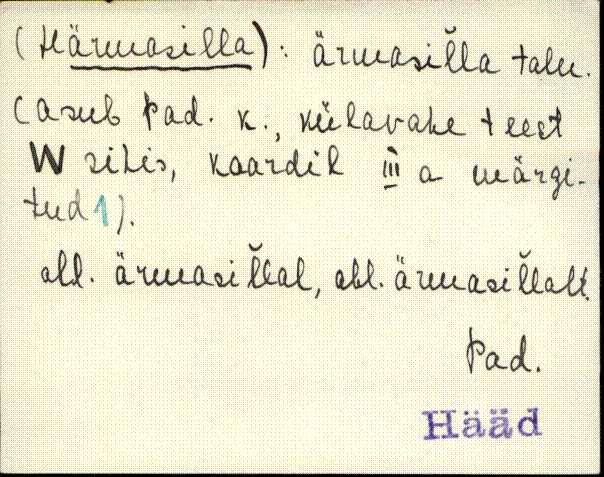 (Härmasilla): ärmasil̆la talu.
(asub Pad. k., külavahe teest
W sihis, kaardil III a märgi-
tud 1).
all. ärmasil̆lal, abl. ärmasil̆lalt.
Pad.
Hääd